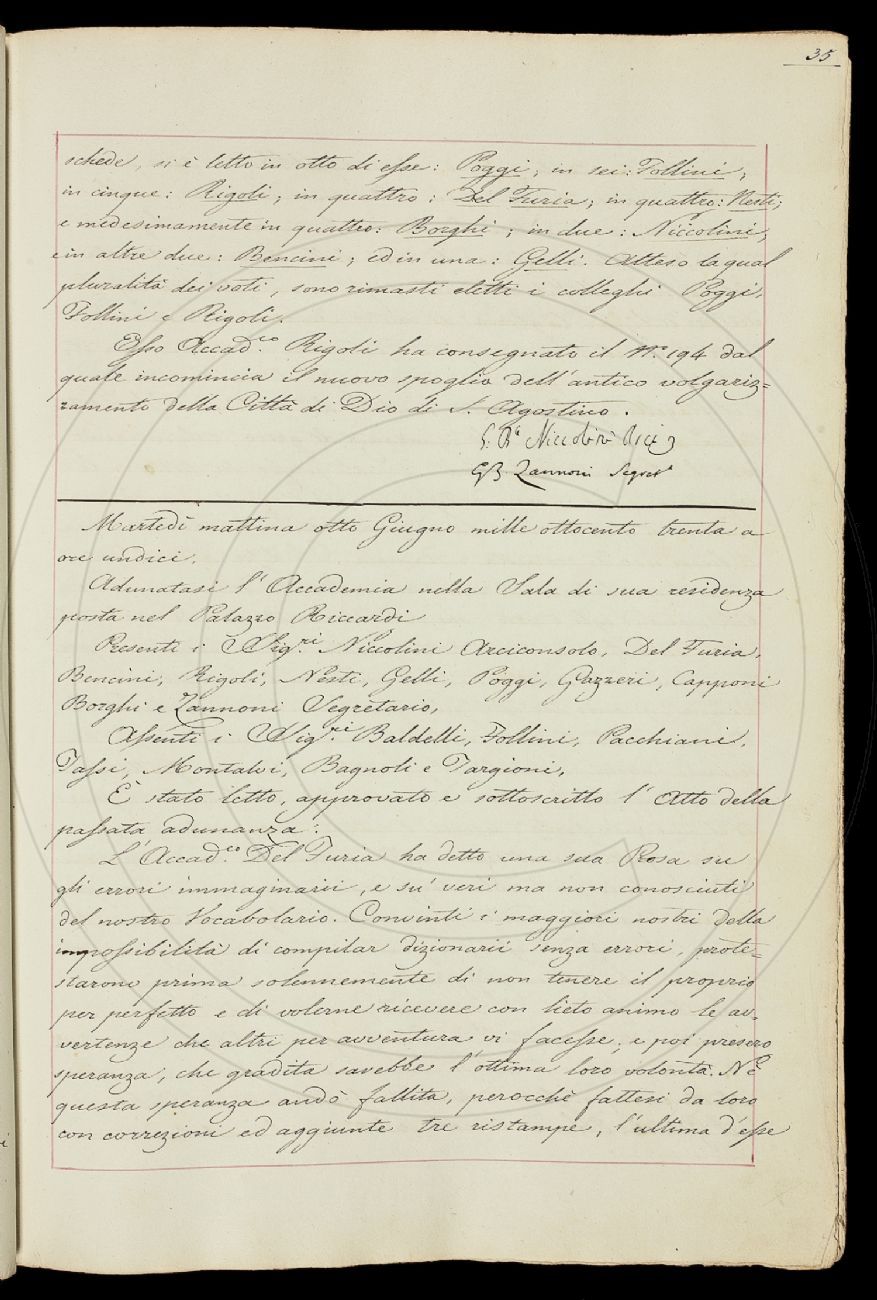 35
schede, si è letto in otto di esse: Poggi; in sei: Follini;
in cinque: Rigoli; in quattro: Del Furia; in quattro: Nesti;
e medesimamente in quattro: Borghi; in due: Niccolini;
e in altre due: Bencini; ed in una: Gelli. Atteso la qual
pluralità dei voti, sono rimasti eletti i colleghi Poggi,
Follini e Rigoli.
Esso Accad.co Rigoli ha consegnato il N.o 194 dal
quale incomincia il nuovo spoglio dell'antico volgariz=
zamento della Città di Dio di S. Agostino.
G. Bta Niccolini
GB Zannoni Segret.o
Martedì mattina otto Giugno mille ottocento trenta a
ore undici.
Adunatasi l'Accademia nella Sala di sua residenza
posta nel Palazzo Riccardi
Presenti i Sig.ri Niccolini Arciconsolo, Del Furia,
Bencini, Rigoli, Nesti, Gelli, Poggi, Gazzeri, Capponi
Borghi e Zannoni Segretario,
Assenti i Sig.ri Baldelli, Follini, Pacchiani,
Tassi, Montalvi, Bagnoli e Targioni,
È stato letto, approvato e sottoscritto l'Atto della
passata adunanza:
L'Accad.co Del Furia ha detto una sua Prosa su
gli errori immaginarii, e su' veri ma non conosciuti
del nostro Vocabolario. Convinti i maggiori nostri della
impossibilità di compilar dizionarii senza errori, prote=
starono prima solennemente di non tenere il proprio
per perfetto e di volerne ricevere con lieto animo le av-
vertenze che altri per avventura vi facesse; e poi presero
speranza, che gradita sarebbe l'ottima loro volontà. Nè
questa speranza andò fallita, perocchè fattesi da loro
con correzioni ed aggiunte tre ristampe, l'ultima d'esse